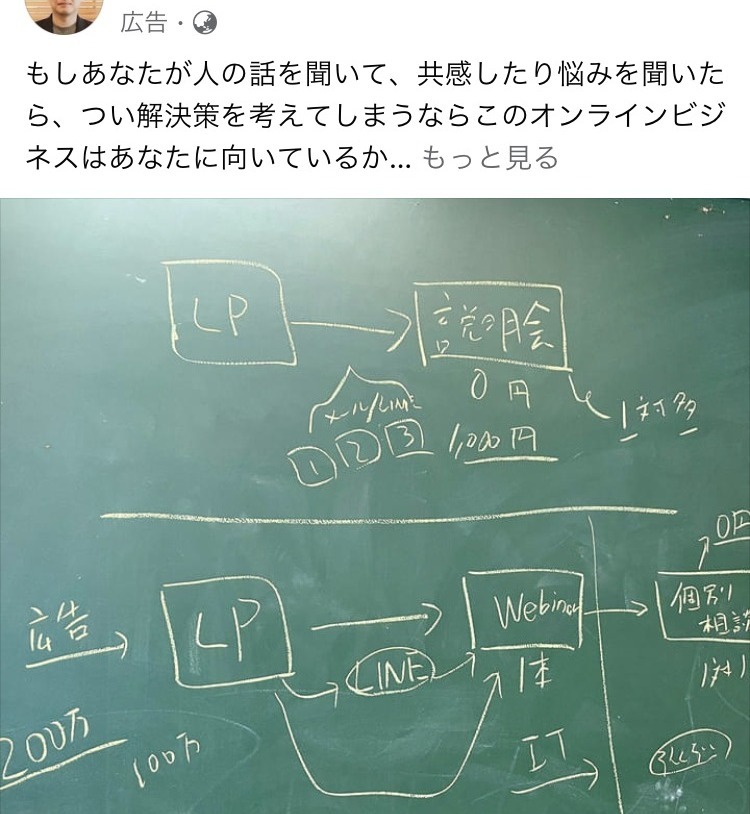 広告
もしあなたが人の話を聞いて、共感したり悩みを聞いた
ら、つい解決策を考えてしまうならこのオンラインビジ
ネスはあなたに向いているか... もっと見る
LP
説明会
メール/LINE
0円
1対多
1 2 3
1,000円
0円
広告
LP
Webinar
個別
相談
LINE
1本
1対1
200万
100万
IT